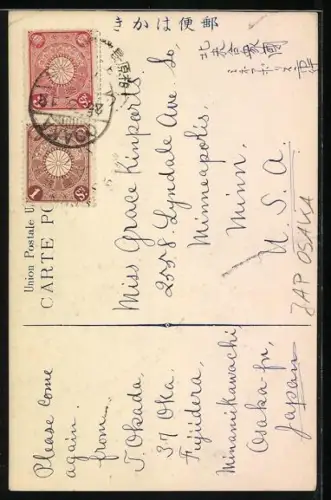 郵便はかき
Union Postale U
CARTE PO
北米合衆國
Miss Grace Kinports.
2558. Lyndale Ave So,
Minneapolis,
Minn,
U. S. A.
JAP OSAKA
Please come
again.
from
T. Okada,
37 Oka.
Fujiidera,
Minamikawachi
Osaka-fu,
Japan